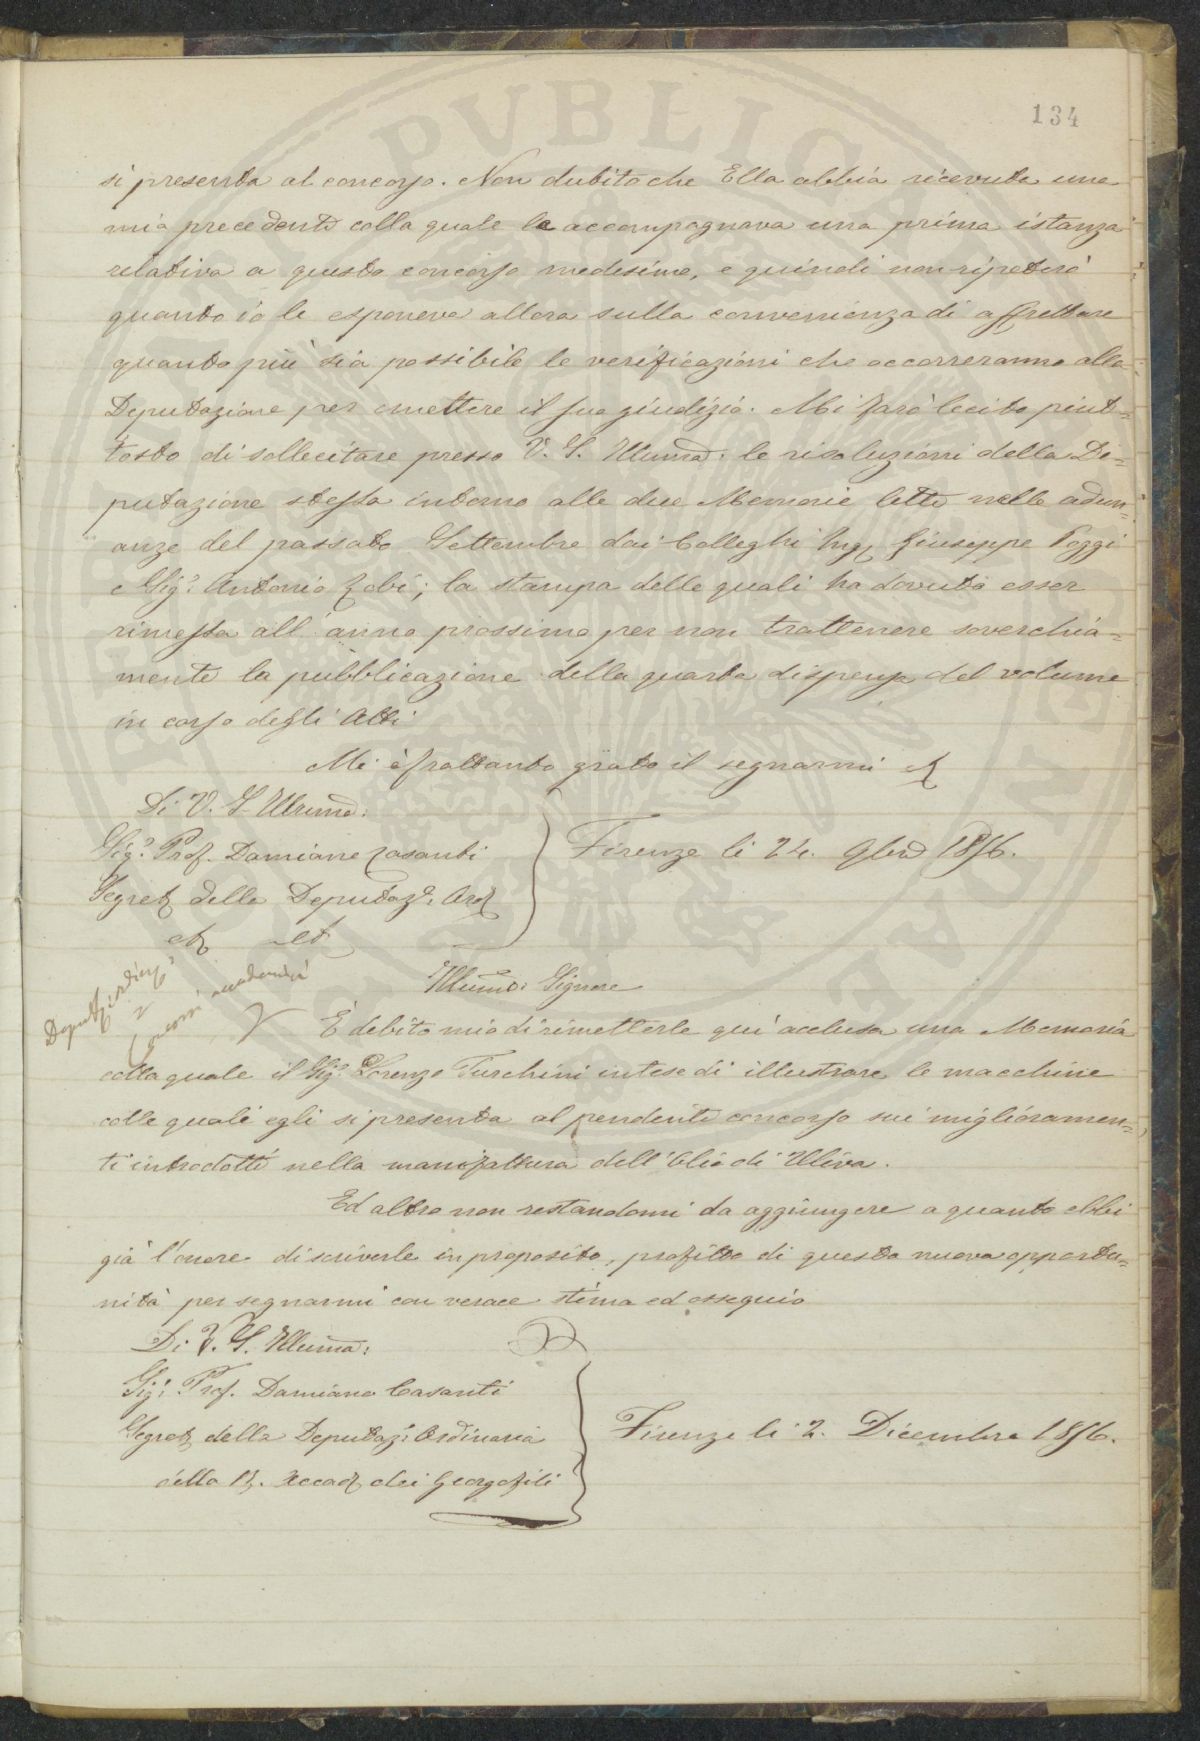 134
si presenta al concorso. Non dubito che Ella abbia ricevuta una
mia precedente colla quale le accompagnava una prima istanza
relativa a questo concorso medesimo, e quindi non ripeterò
quanto io le esponeva allora sulla convenienza di affrettare
quanto più sia possibile le verificazioni che occorreranno alla
Deputazione per emettere il suo giudizio. Mi farò lecito piut=
tosto di sollecitare presso V. S. Illuma. le risoluzioni della De=
putazione stessa intorno alle due Memorie lette nelle adun=
anze del passato Settembre dai Colleghi Ing. Giuseppe Poggi
e Sig. Antonio Zobi; la stampa delle quali ha dovuto esser
rimessa all'anno prossimo per non trattenere soverchia=
mente la pubblicazione della quarta dispensa del volume
in corso degli Atti
Mi è frattanto grato il segnarmi
Di V. S. Illuma:
Sig. Prof. Damiano Casanti
Segret della Deputaz. Ord
Firenze li 24. 9bre 1856.
Illumo: Signore
Deputaz ordin
Concorsi accademici
È debito mio di rimetterle qui acclusa una Memoria
colla quale il Sig. Lorenzo Turchini intese di illustrare le macchine
colle quali egli si presenta al pendente concorso sui miglioramen=
ti introdotti nella manifattura dell'Olio di Uliva.
Ed altro non restandomi da aggiungere a quanto ebbi
già l'onore di scriverle in proposito, profitto di questa nuova opportu=
nità per segnarmi con verace stima ed ossequio
Di V. S. Illuma:
Sig. Prof. Damiano Casanti
Segret della Deputaz. Ordinaria
della R. Accad dei Georgofili
Firenze li 2. Dicembre 1856.